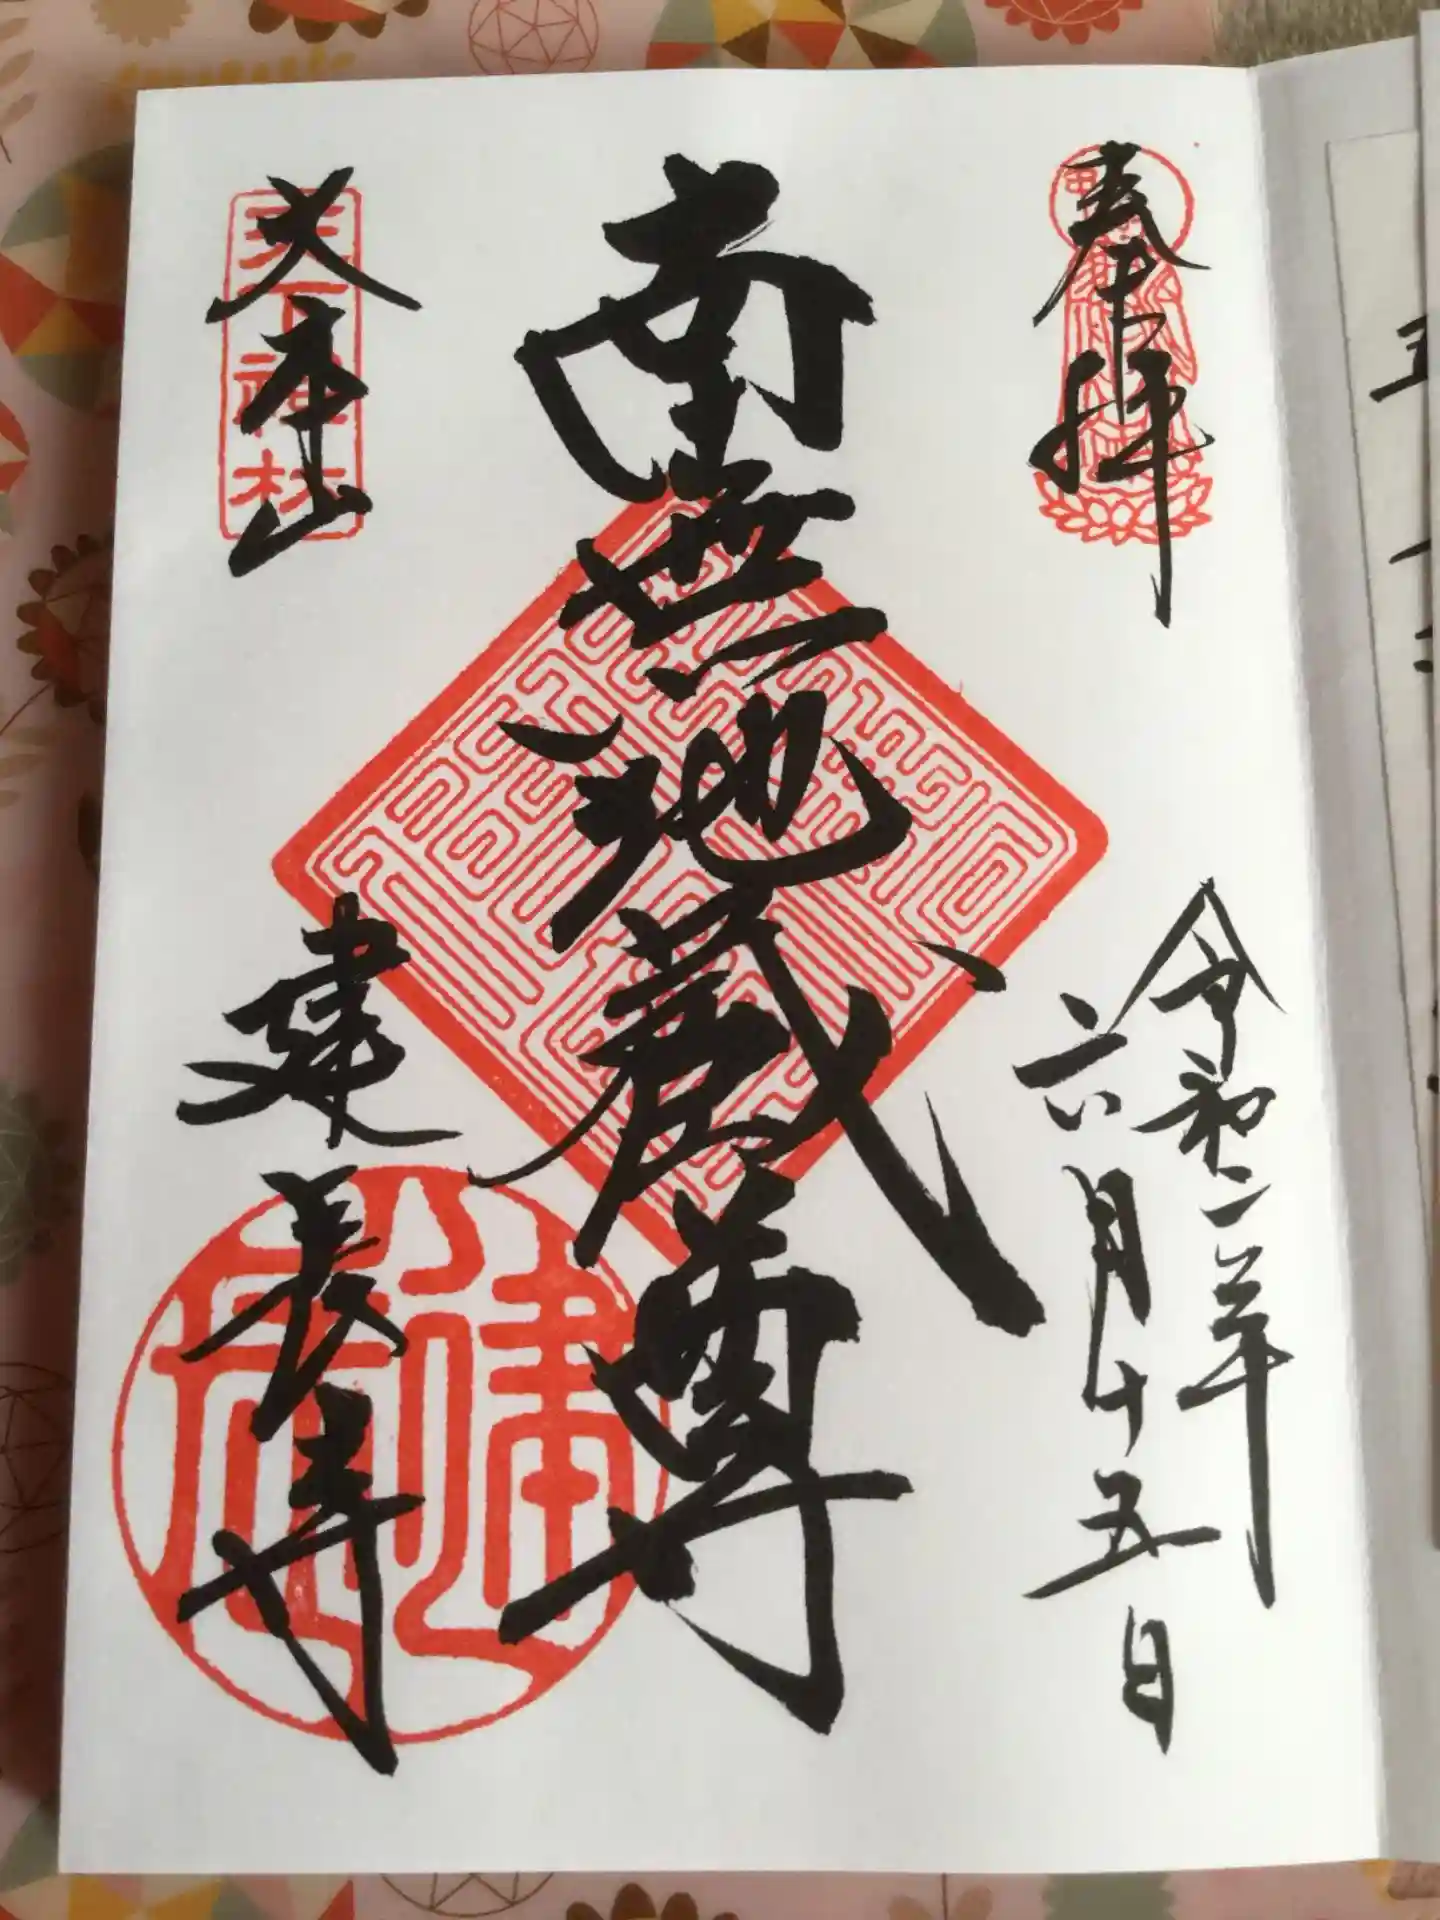 奉拝
令和二年
六月十五日
南無地蔵尊
大本山
建長寺
天下禅林